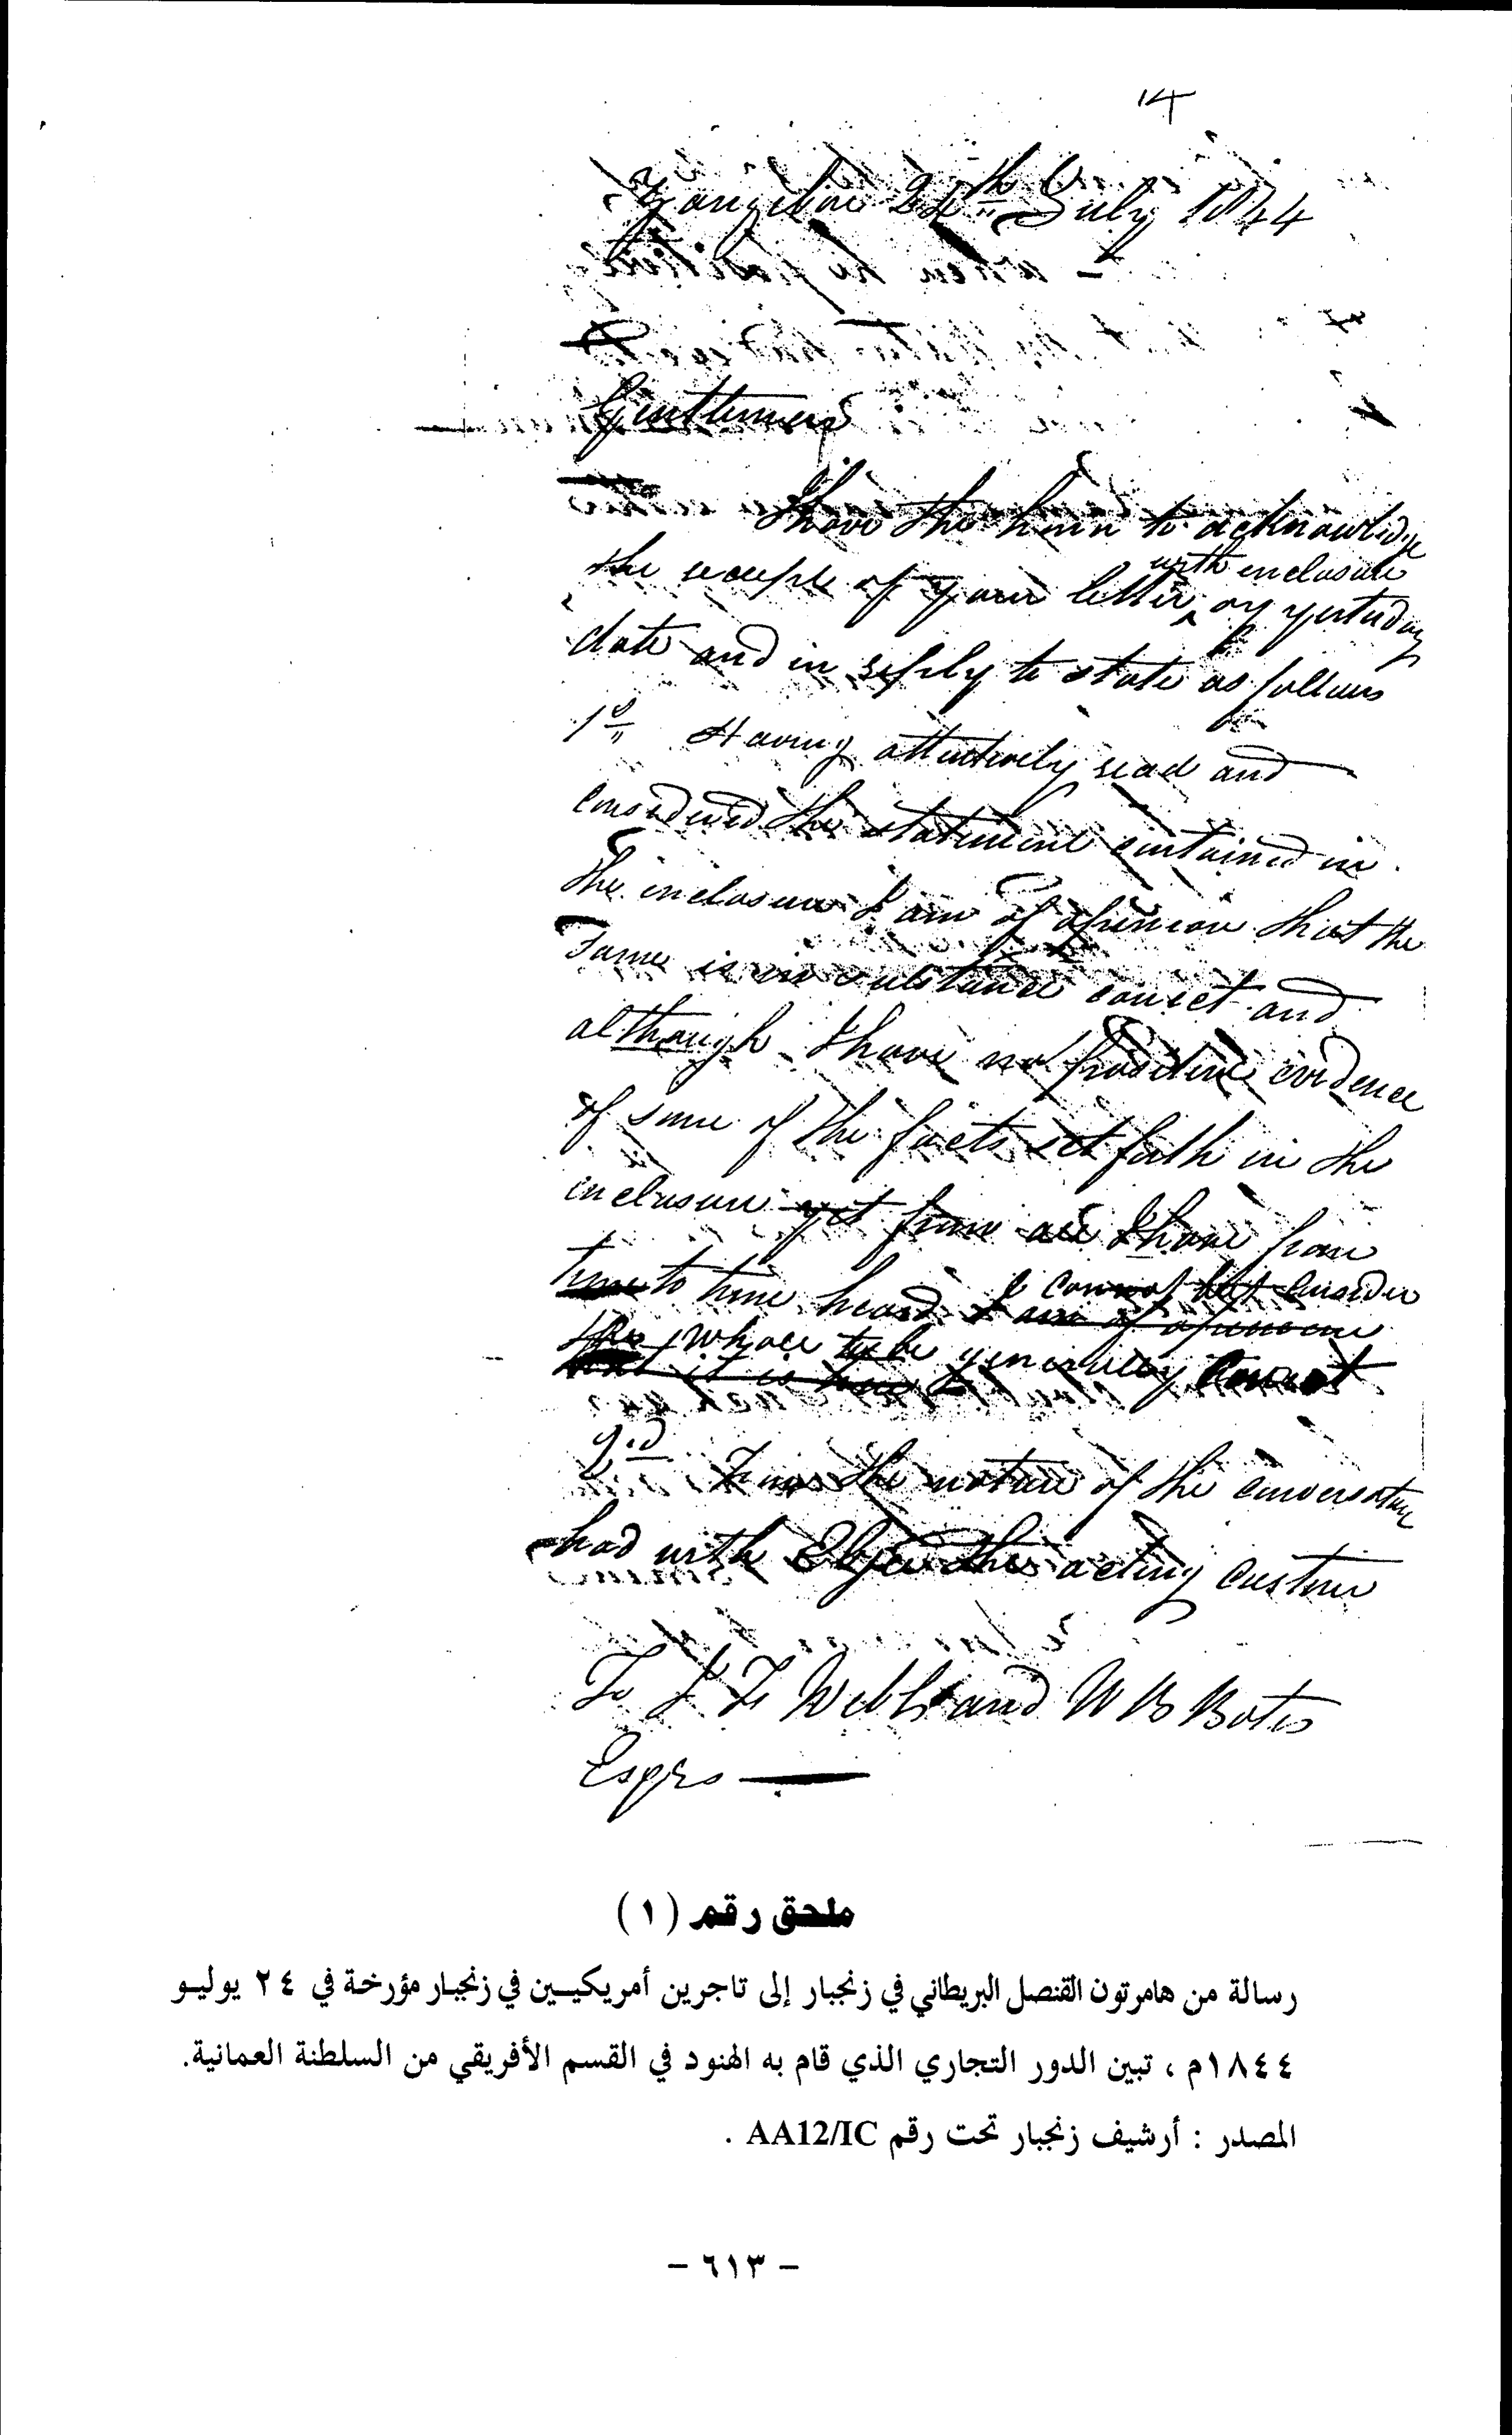 14
Zanzibar 24th July 1844
Gentlemen
I have the honor to acknowledge
the receipt of your letter with enclosure of yesterday
date and in reply to state as follows
1st Having attentively read and
considered the statement contained in
the inclosure I am of opinion that the
same is in substance correct and
although I have no positive evidence
of some of the facts set forth in the
inclosure yet from all I have from
time to time heard I cannot but consider
I am of opinion
the whole to be generally correct
that it is
2.d From the nature of the conversation
had with Ebjee the acting custom
To
Webb and W B Bates
Esqrs
ملحق رقم (١)
رسالة من هامرتون القنصل البريطاني في زنجبار إلى تاجرين أمريكيين في زنجبار مؤرخة في ٢٤ يوليو
١٨٤٤م ، تبين الدور التجاري الذي قام به الهنود في القسم الأفريقي من السلطنة العمانية.
المصدر : أرشيف زنجبار تحت رقم AA12/IC .
- ٦١٣ -